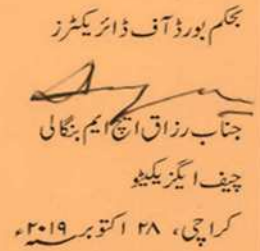 بحکم بورڈ آف ڈائریکٹرز
جناب رزاق ایچ ایم بنگالی
چیف ایگزیکیٹو
کراچی، ۲۸ اکتوبر ۲۰۱۹ء